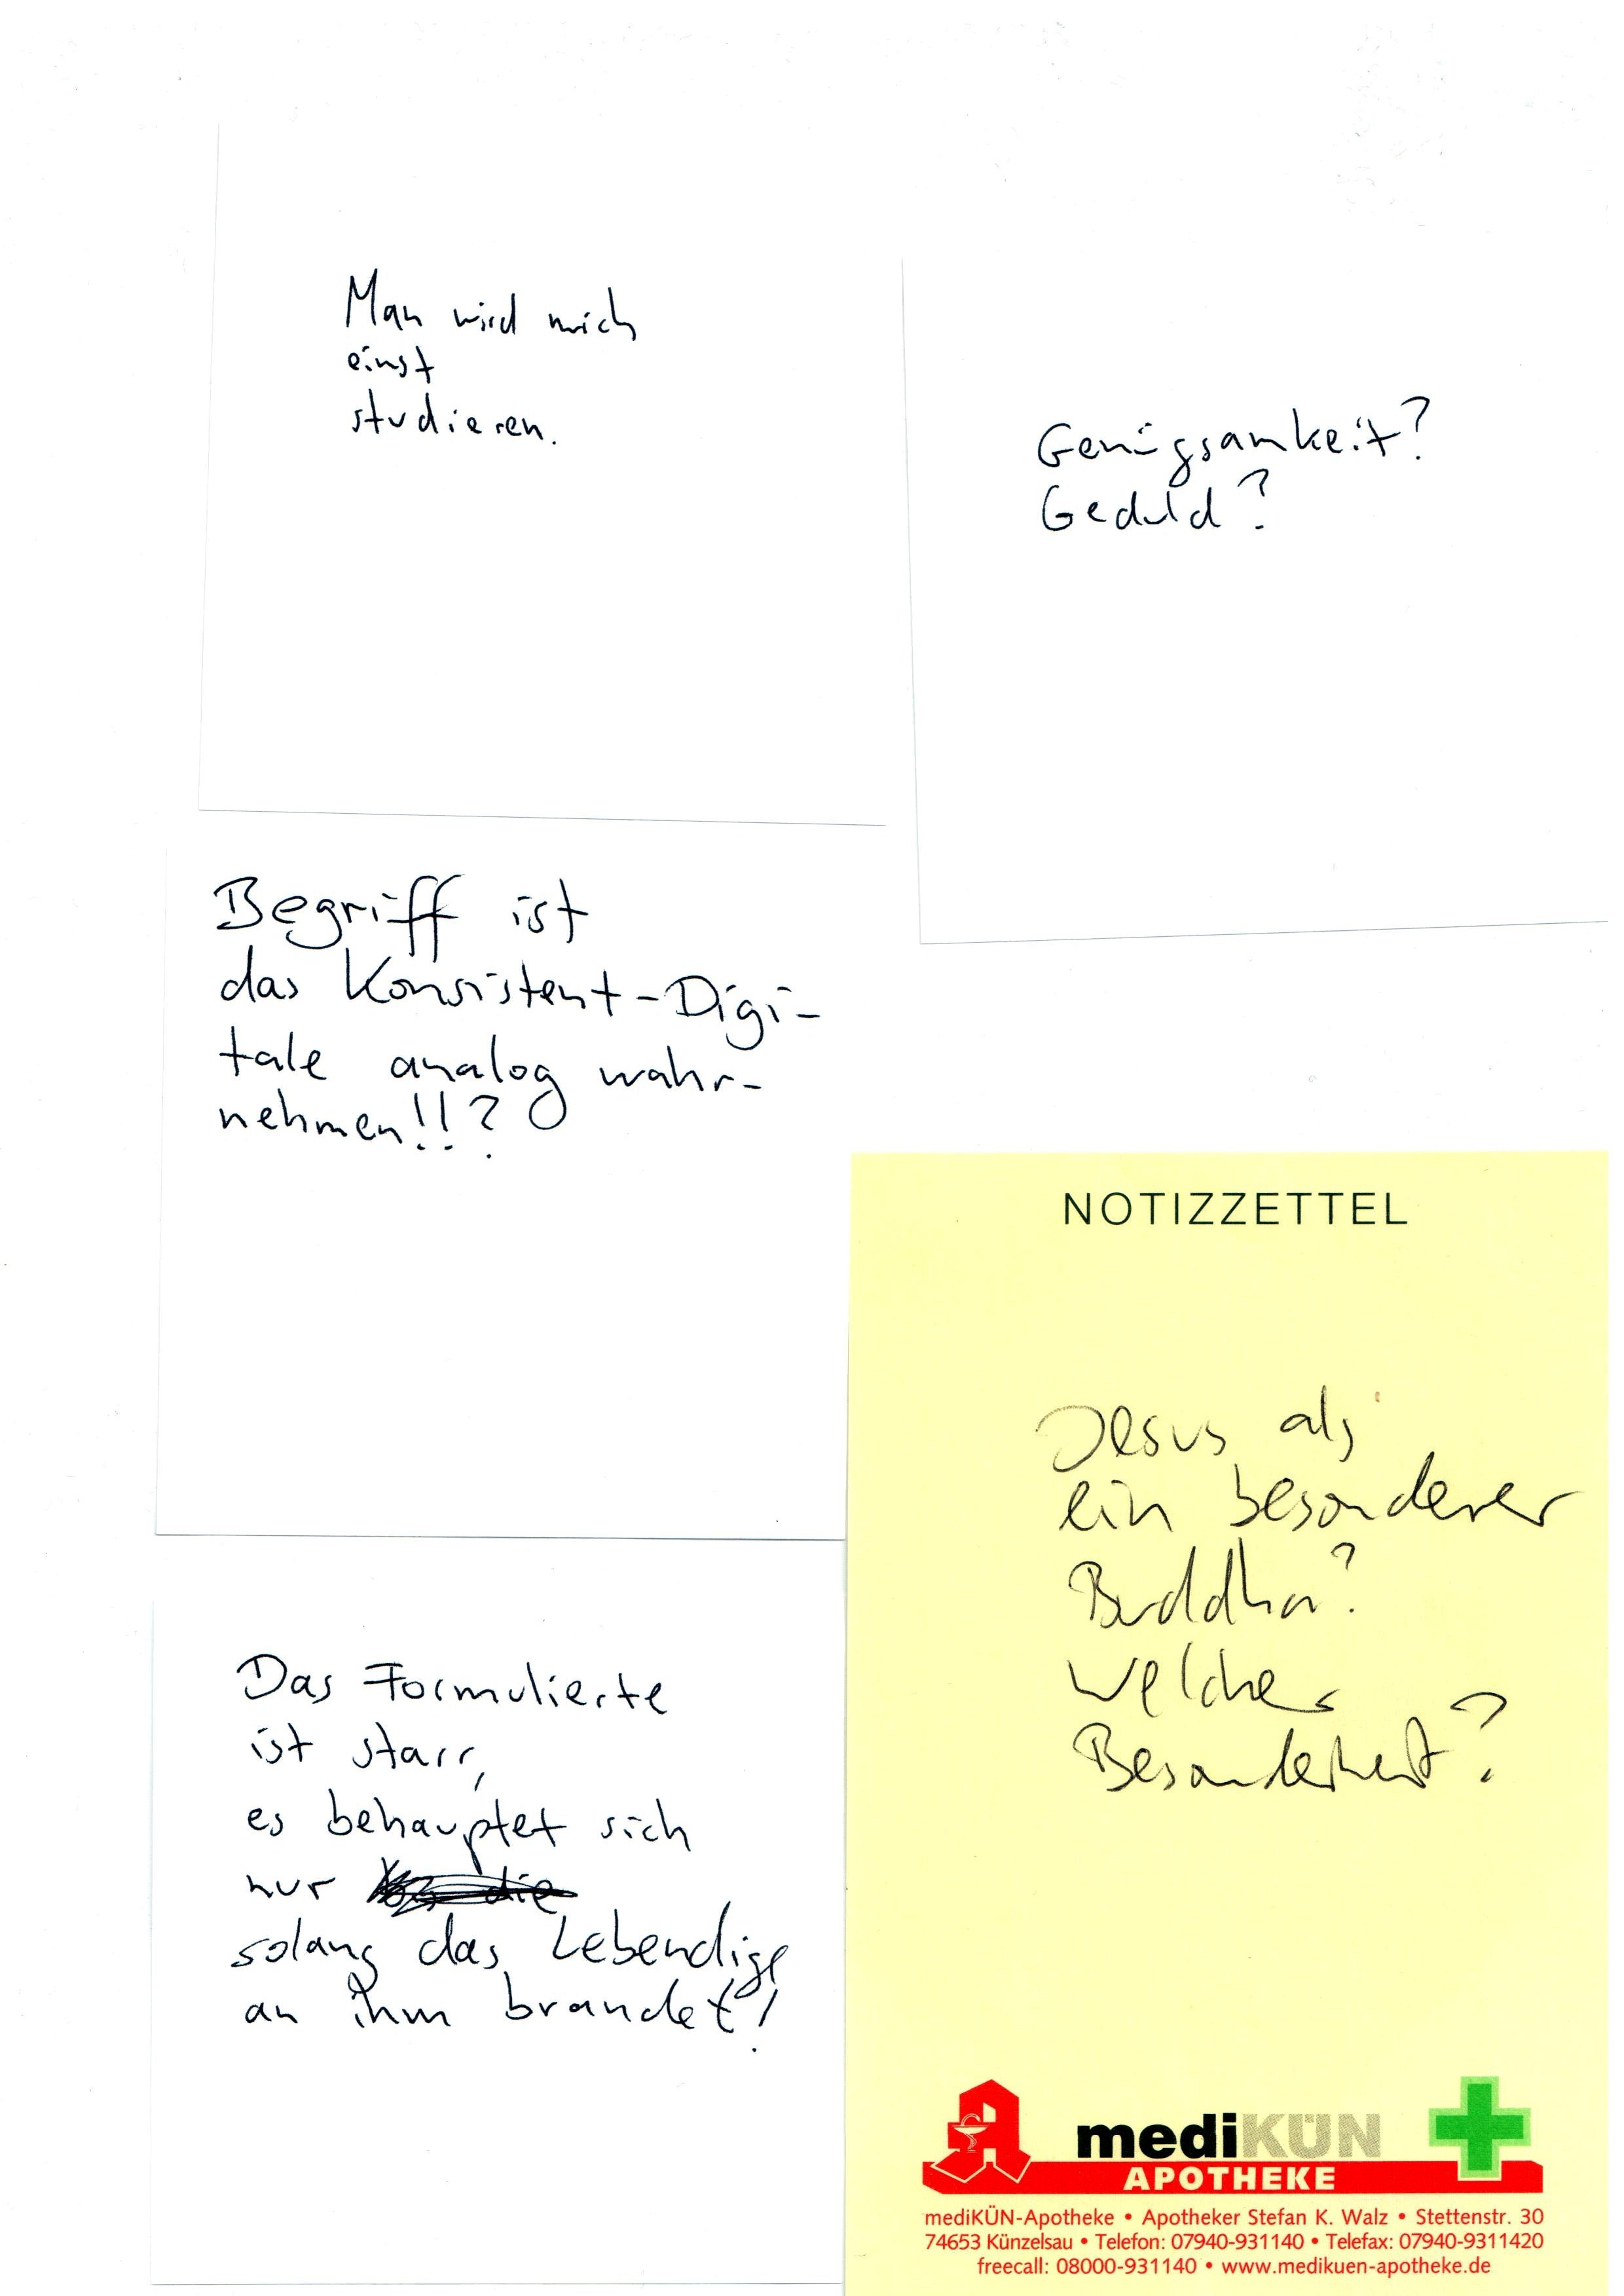 Man wird mich
einst
studieren.
Genügsamkeit?
Geduld?
Begriff ist
das Konsistent-Digi-
tale analog wahr-
nehmen!!?
NOTIZZETTEL
Jesus als
ein besonderer
Buddha?
Welche
Besonderheit?
Das Formulierte
ist starr,
es behauptet sich
nur die
solang das Lebendige
an ihm brandet!
mediKÜN
APOTHEKE
mediKÜN-Apotheke • Apotheker Stefan K. Walz • Stettenstr. 30
74653 Künzelsau • Telefon: 07940-931140 • Telefax: 07940-9311420
freecall: 08000-931140 • www.medikuen-apotheke.de